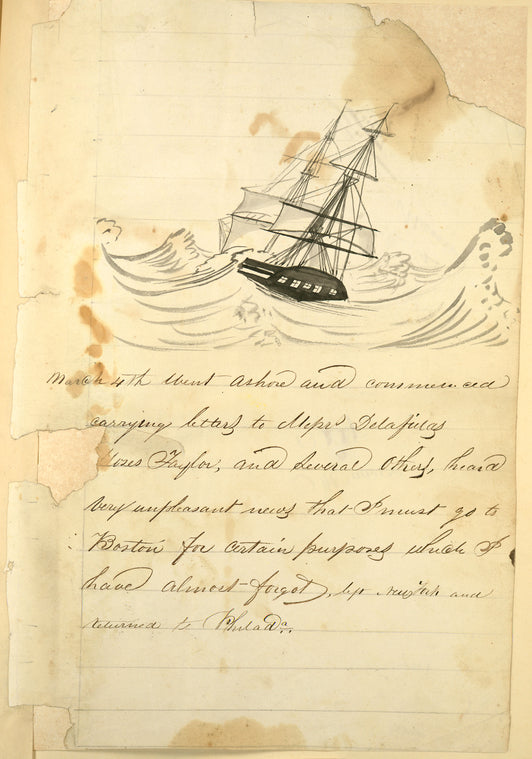 March 4th Went ashore and commenced
carrying letters to Messrs Delafields
Moses Taylor, and several others, heard
very unpleasant news that I must go to
Boston for certain purposes which I
have almost forgot, left New York and
returned to Philada.